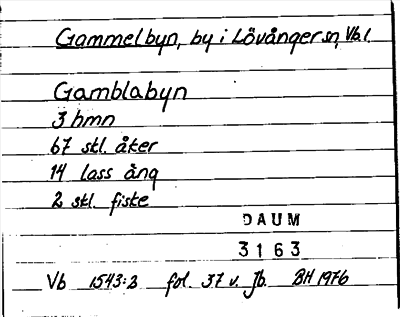 Gammelbyn, by i Lövånger sn, Vb l.
Gamblabyn
3 hmn
67 skl. åker
14 lass äng
2 skl. fiske
DAUM
3163
Vb 1543:2 fol. 37 v. Jb. BH 1976